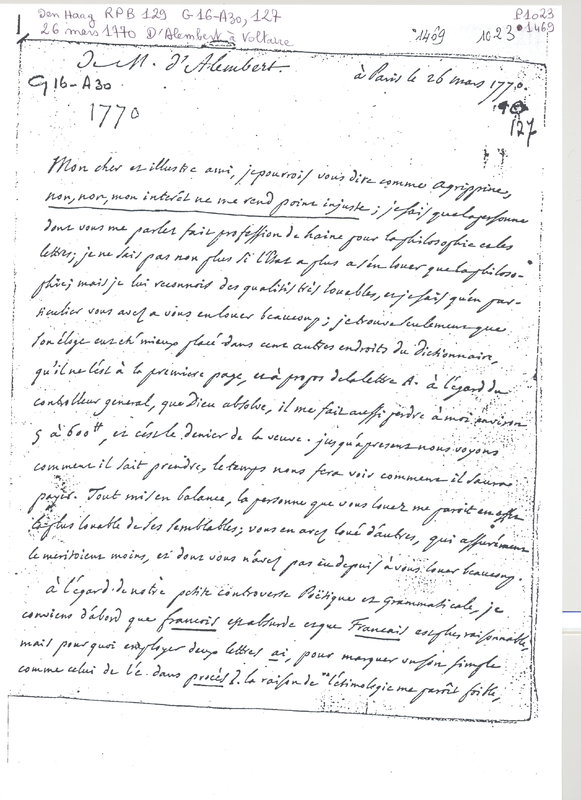 Den Haag RPB 129 G16-A30, 127
26 mars 1770 D'Alembert à Voltaire
1469
1023
P1023
1469
De M. d'Alembert.
à Paris le 26 mars 1770.
G16-A30
1770
127
Mon cher et illustre ami, je pourrois vous dire comme agrippine,
non, non, mon interêt ne me rend point injuste; je sais que la personne
dont vous me parlez fait profession de haine pour la philosophie et les
lettres; je ne sais pas non plus si l'Etat a plus a s'en louer que la philoso-
phie; mais je lui reconnois des qualités très louables, et je sais qu'en par-
ticulier vous avez a vous en louer beaucoup; je trouve seulement que
son éloge eut été mieux placé dans cent autres endroits du Dictionnaire,
qu'il ne l'est à la premiere page, et à propos de la lettre A. à l'égard du
controlleur general, que Dieu absolve, il me fait aussi perdre à moi environ
5 à 600 tt, et c'est le denier de la veuve. jusqu'apresent nous voyons
comment il sait prendre, le temps nous fera voir comment il saura
payer. Tout mis en balance, la personne que vous louez me paroît en effet
la plus louable de ses semblables; vous en avez loué d'autres, qui assurément
le meritoient moins, et dont vous n'avez pas eu depuis à vous louer beaucoup.
à l'égard de notre petite controverse Poëtique et Grammaticale, je
conviens d'abord que francois est absurde et que Francais est plus raisonnable,
mais pourquoi employer deux lettres ai, pour marquer un son simple
comme celui de l'è dans procès? la raison de l'étimologie me paroît foible,